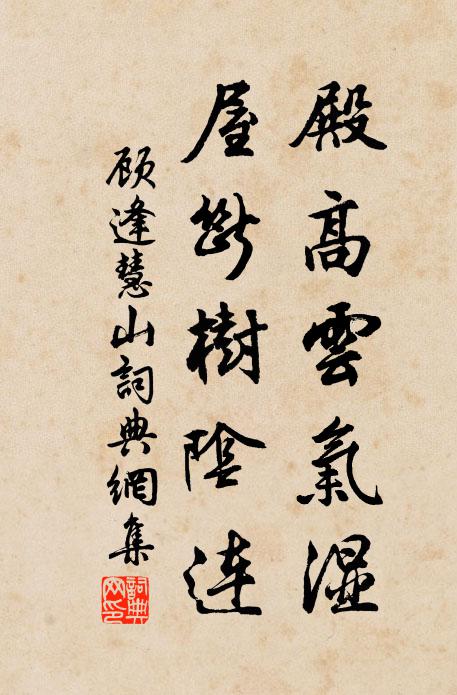 殿高雲氣濕
屋斷樹陰連
顾逢慧山詞典網集
詞典网印